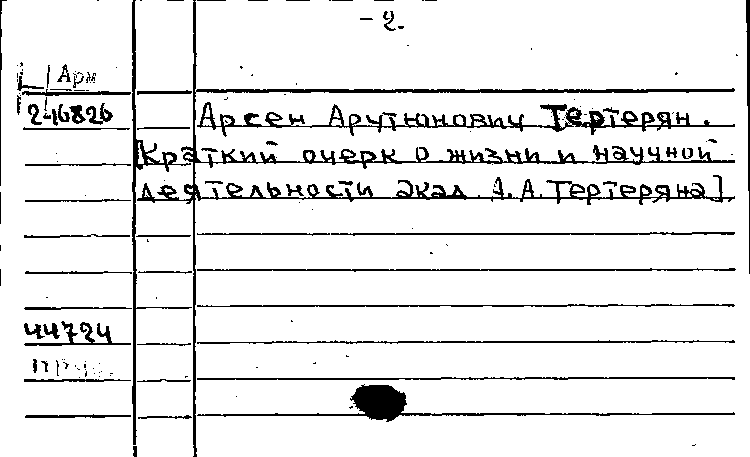 - 2.
Арм
2-16826
Арсен Арутюнович Тертерян.
[Краткий очерк о жизни и научной
деятельности акад А.А. Тертеряна]
44724